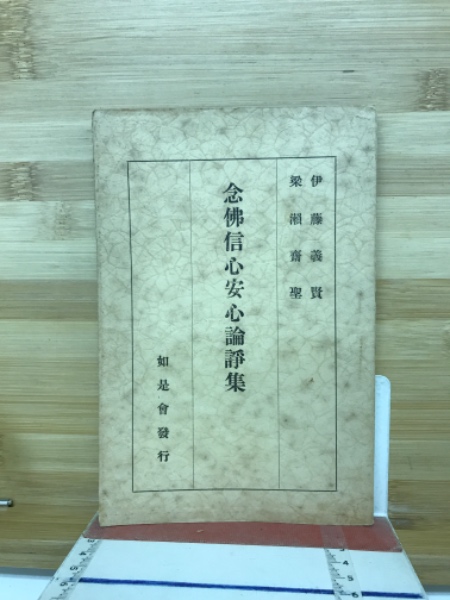 伊藤義賢
梁瀬齋聖
念佛信心安心論諍集
如是會發行